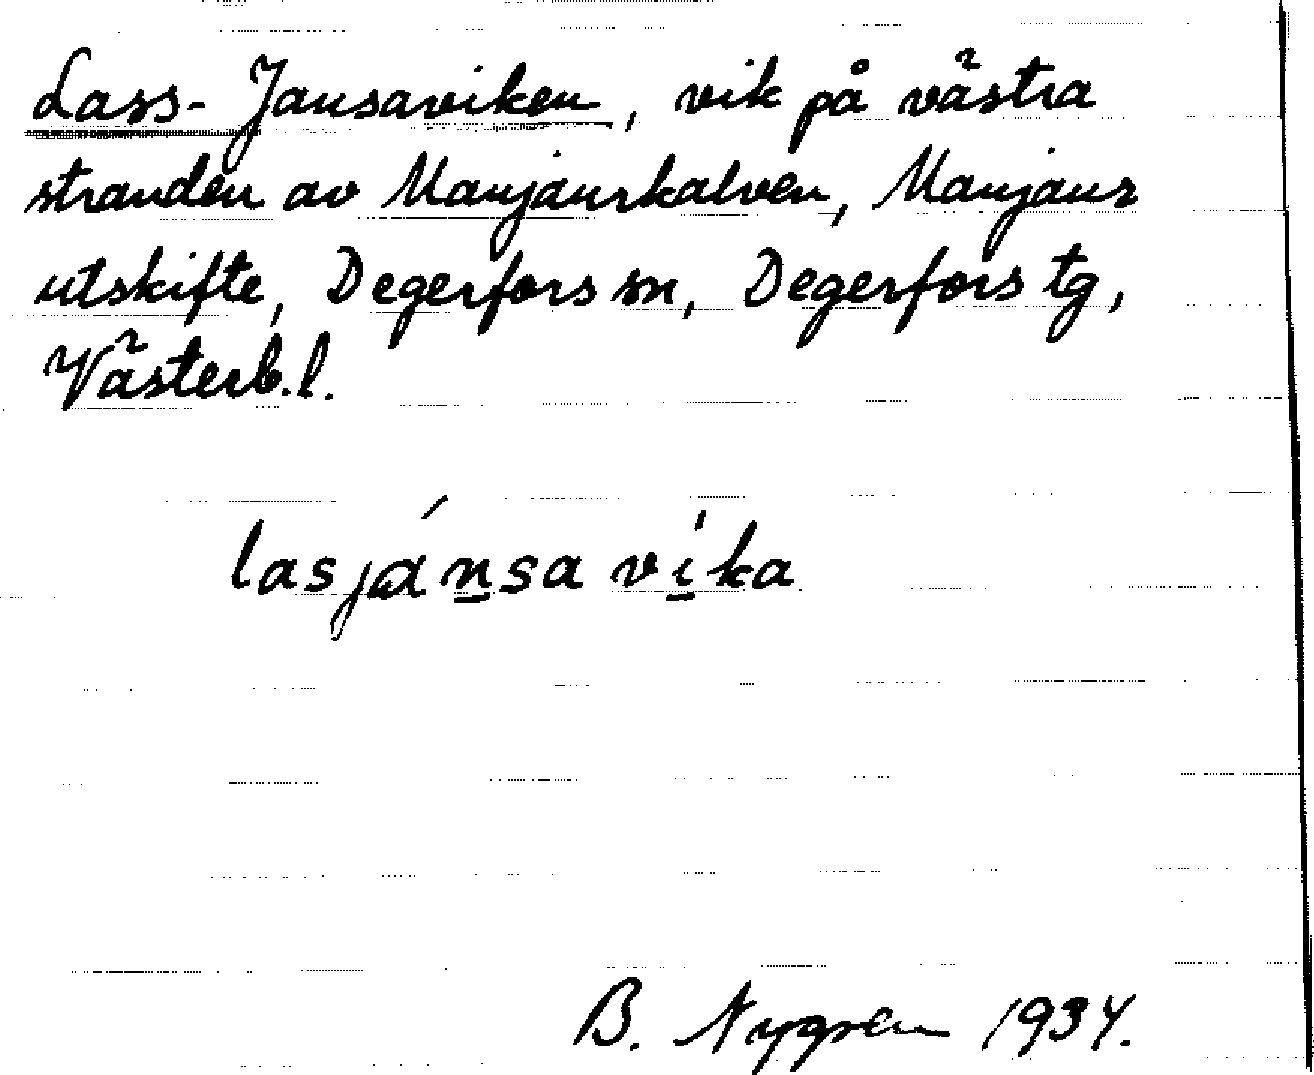 Lass-Jansaviken, vik på västra
stranden av Manjaurkalven, Manjaur
utskifte, Degerfors sn, Degerfors tg,
Västerb.l.
lasjánsa víka
B. Nygren 1934.